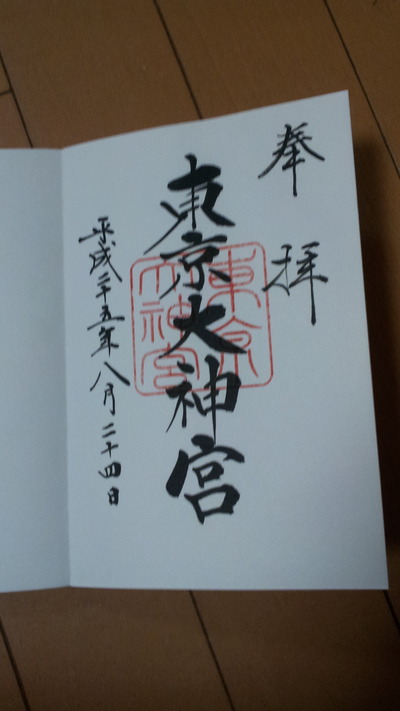 奉拝
東京大神宮
東京大神宮
平成二十五年八月二十四日